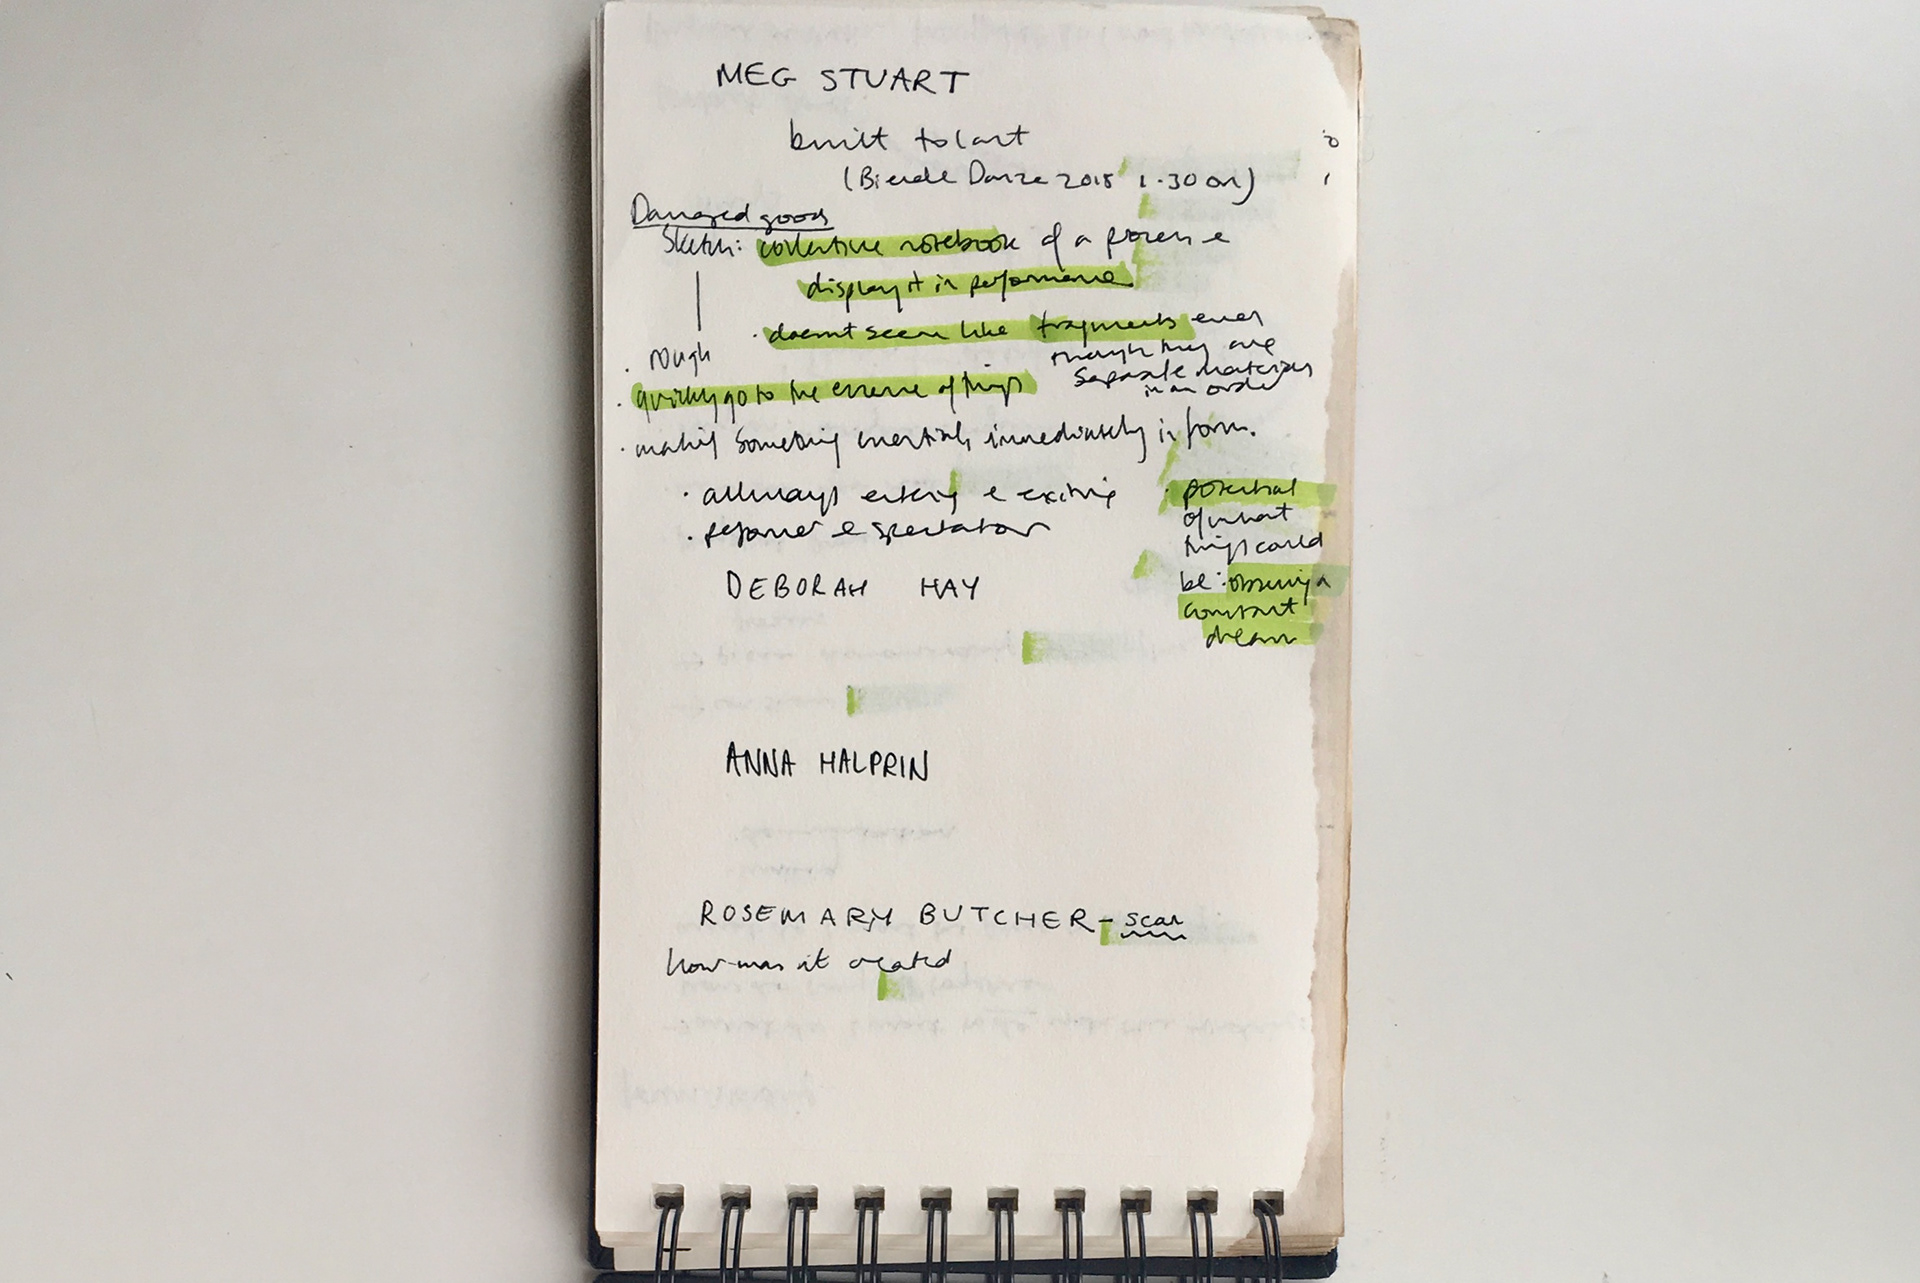 MEG STUART
built to last
(Bienale Danza 2018 1.30 on)
Damaged goods
Sketch: collective notebook of a process e
display it in performance
· doesnt seem like fragments even
though they are
separate materials
in an order
· rough
· quickly go to the essence of things
· making something materials immediately in form.
· allways entering e exiting
· performer e spectator
· potential
of what
things could
be: observing a
constant
dream
DEBORAH HAY
ANNA HALPRIN
ROSEMARY BUTCHER - scan
how was it created